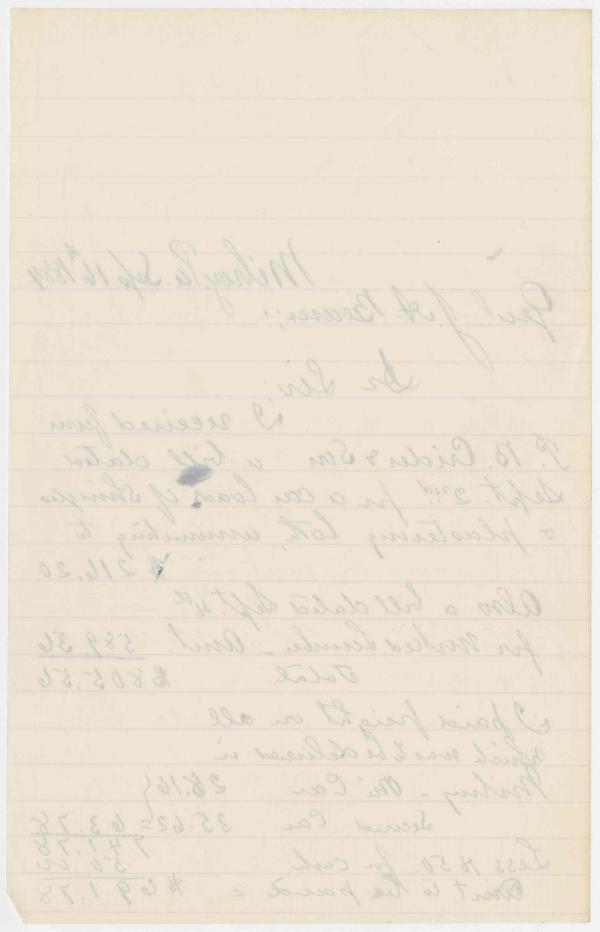 Milroy, Pa. Sep. 16th 1884
Genl. J. A. Beaver;
Dr Sir;
I received from
P. B. Crider & Son a bill dated
Sept 2nd. for a car load of Shingles
& plastering lath, amounting to
$216.20
Also a bill dated Sept. 4th
for worked Lumber - Amt. 589.36
Total $805.56
I paid freight on all
which was to be delivered in
Milroy - One Car 28.16
Second Car 35.62 = 63.78
741.78
Less $50. for cash 50.00
Amt to be paid = $691.78